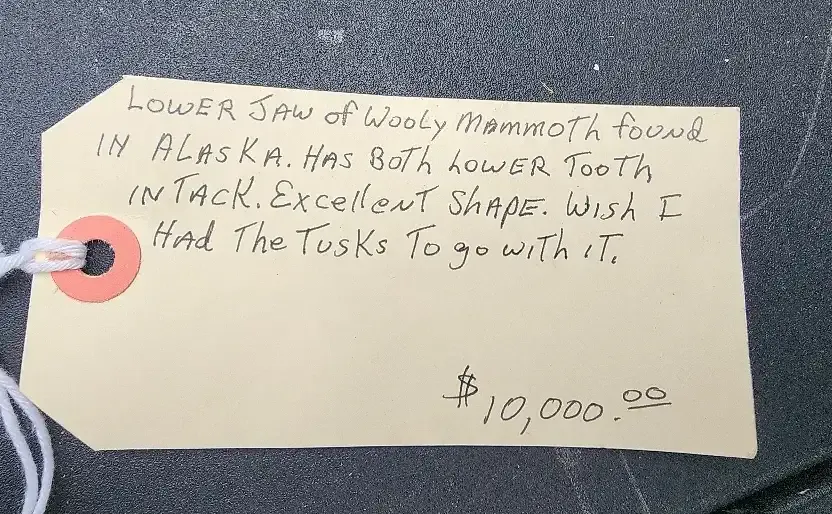 LOWER JAW of WOOLY MAMMOTH found
IN ALASKA. HAS BOTH LOWER TOOTH
IN TACK. Excellent SHAPE. WISH I
HAD The TUSKS TO go WITH IT.
$10,000.00